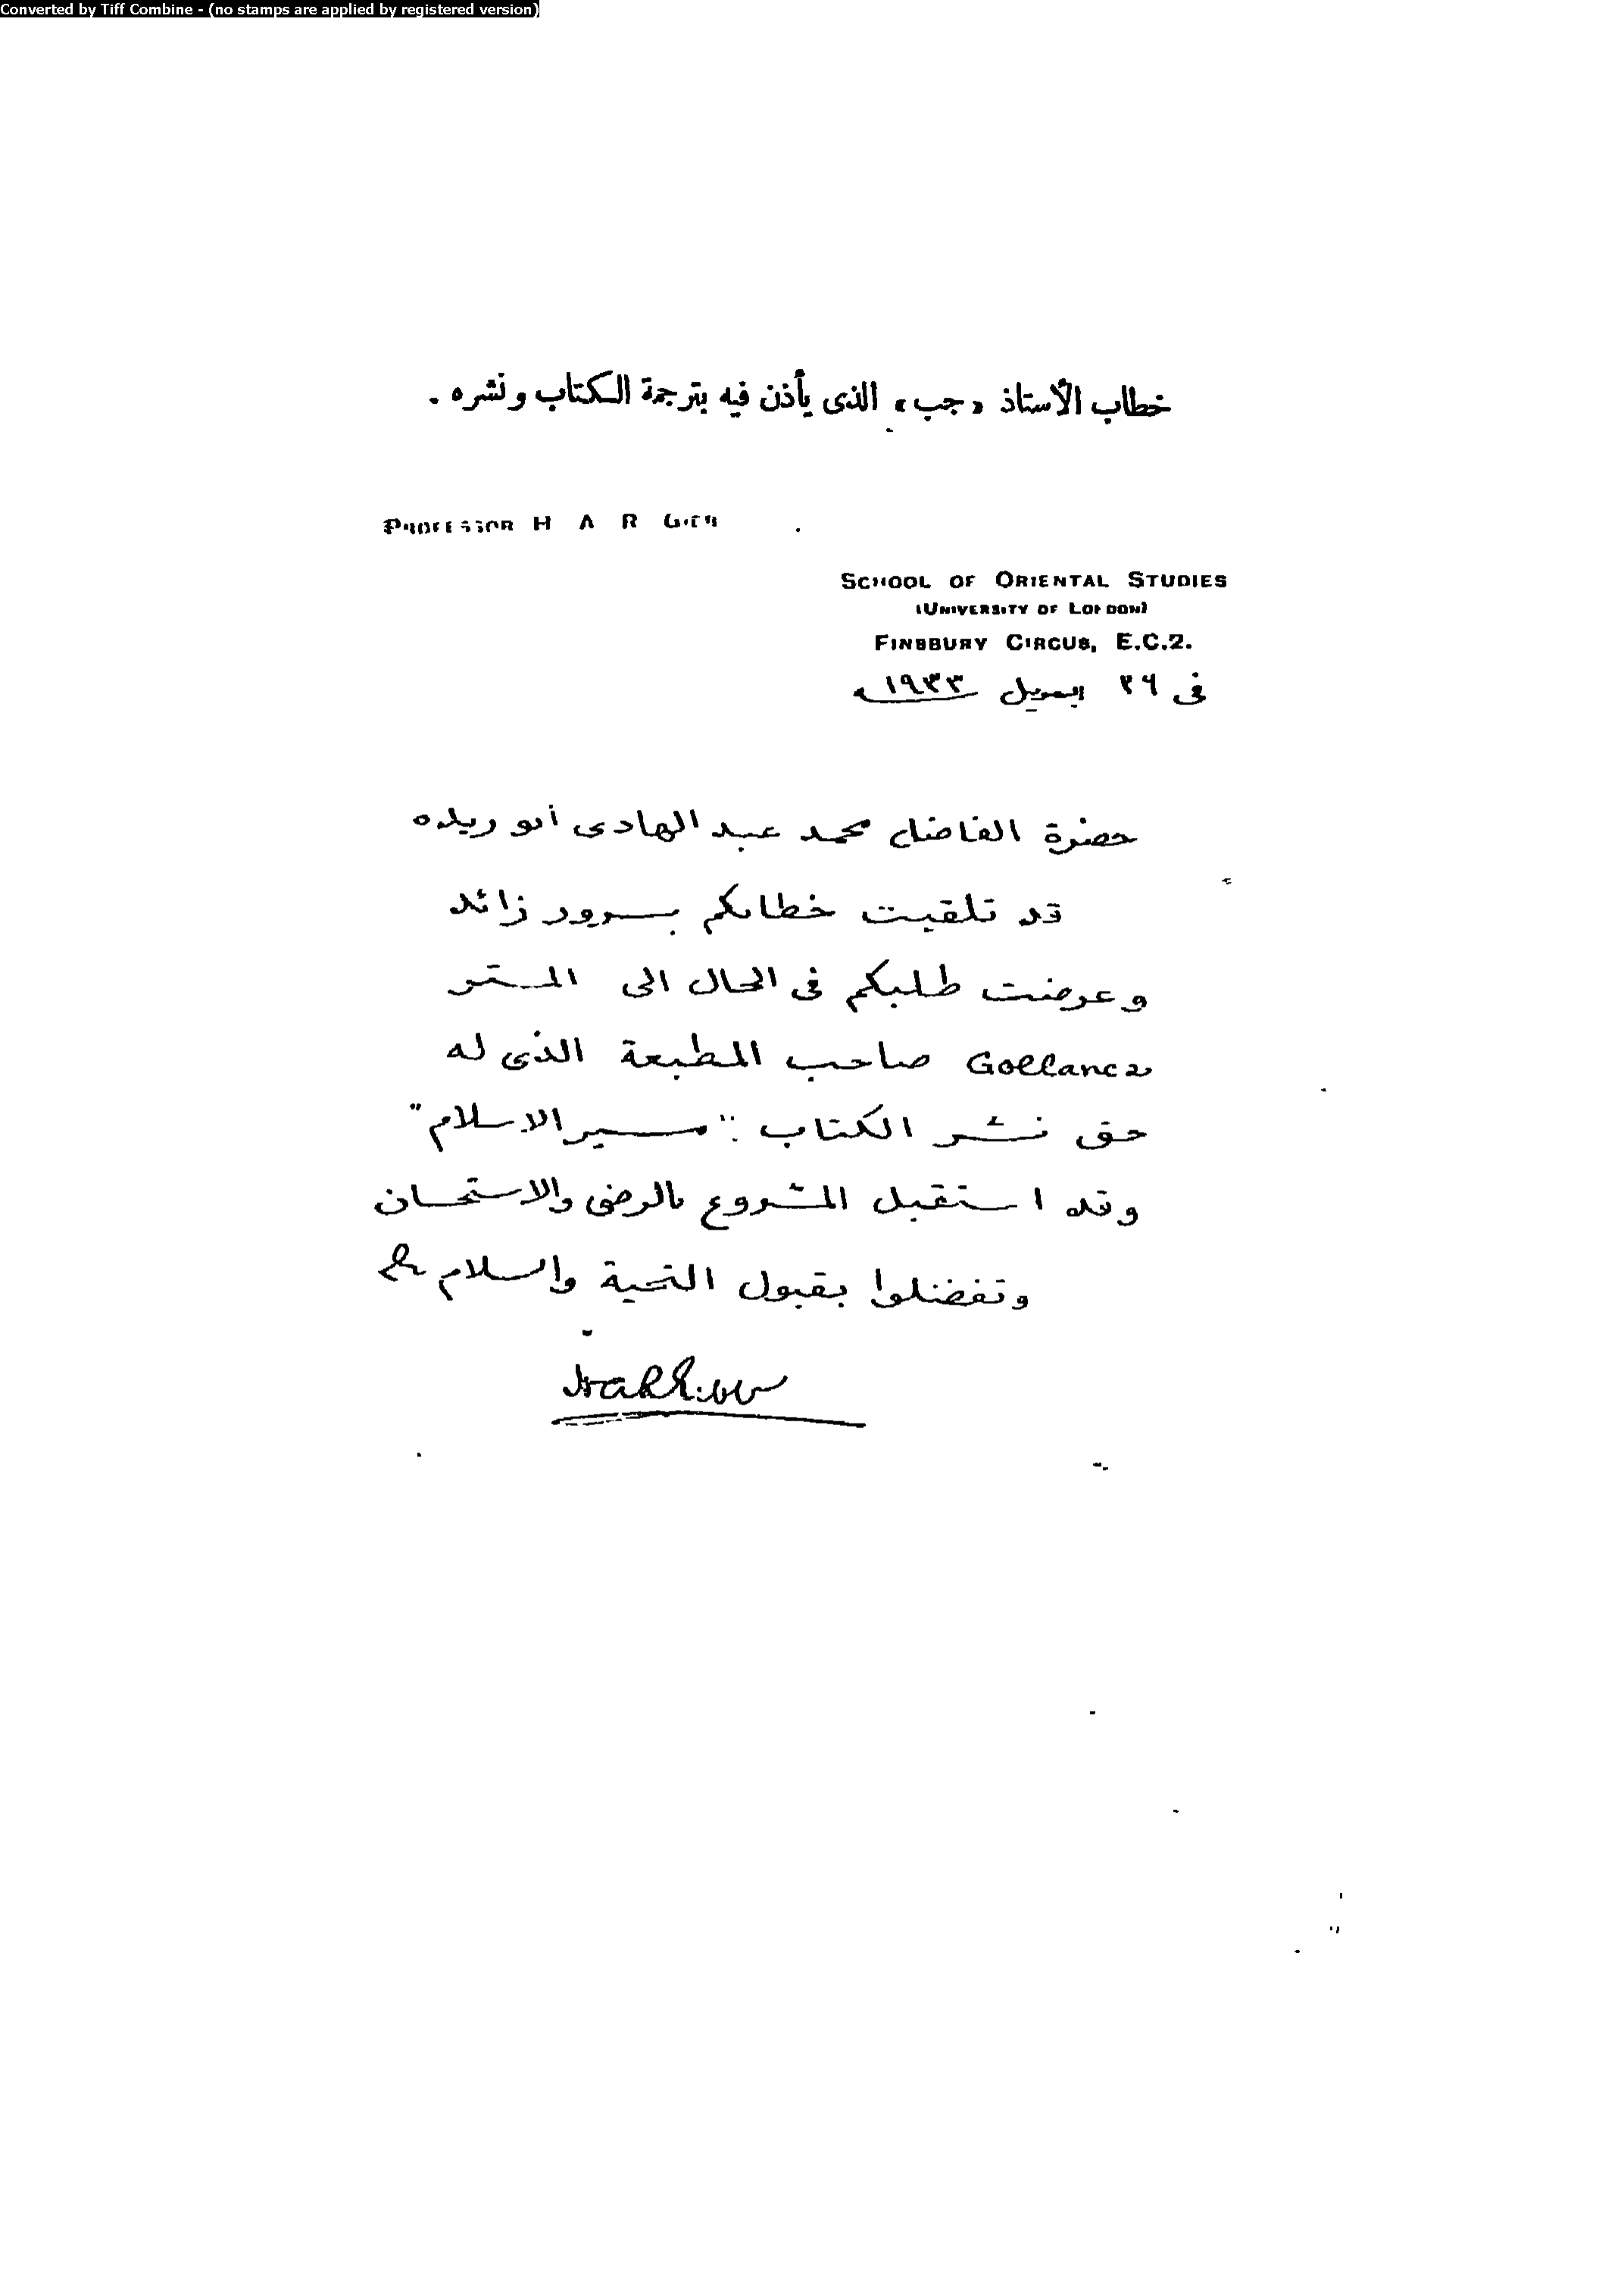 Converted by Tiff Combine - (no stamps are applied by registered version)
خطاب الأستاذ «جب» الذى يأذن فيه بترجمة الكتاب ونشره .
PROFESSOR H A R GIBB
SCHOOL OF ORIENTAL STUDIES
(UNIVERSITY OF LONDON)
FINSBURY CIRCUS, E.C.2.
فى ٢٦ ابريل ١٩٣٣
حضرة الفاضل محمد عبد الهادى أبو ريده
قد تلقيت خطابكم بسرور زائد
وعرضت طلبكم فى الحال الى المستر
Gollancz صاحب المطبعة الذى له
حق نشر الكتاب : "مسير الاسلام"
وقد استقبل المشروع بالرضى والاستحسان
وتفضلوا بقبول التحية والسلام
HARGibb